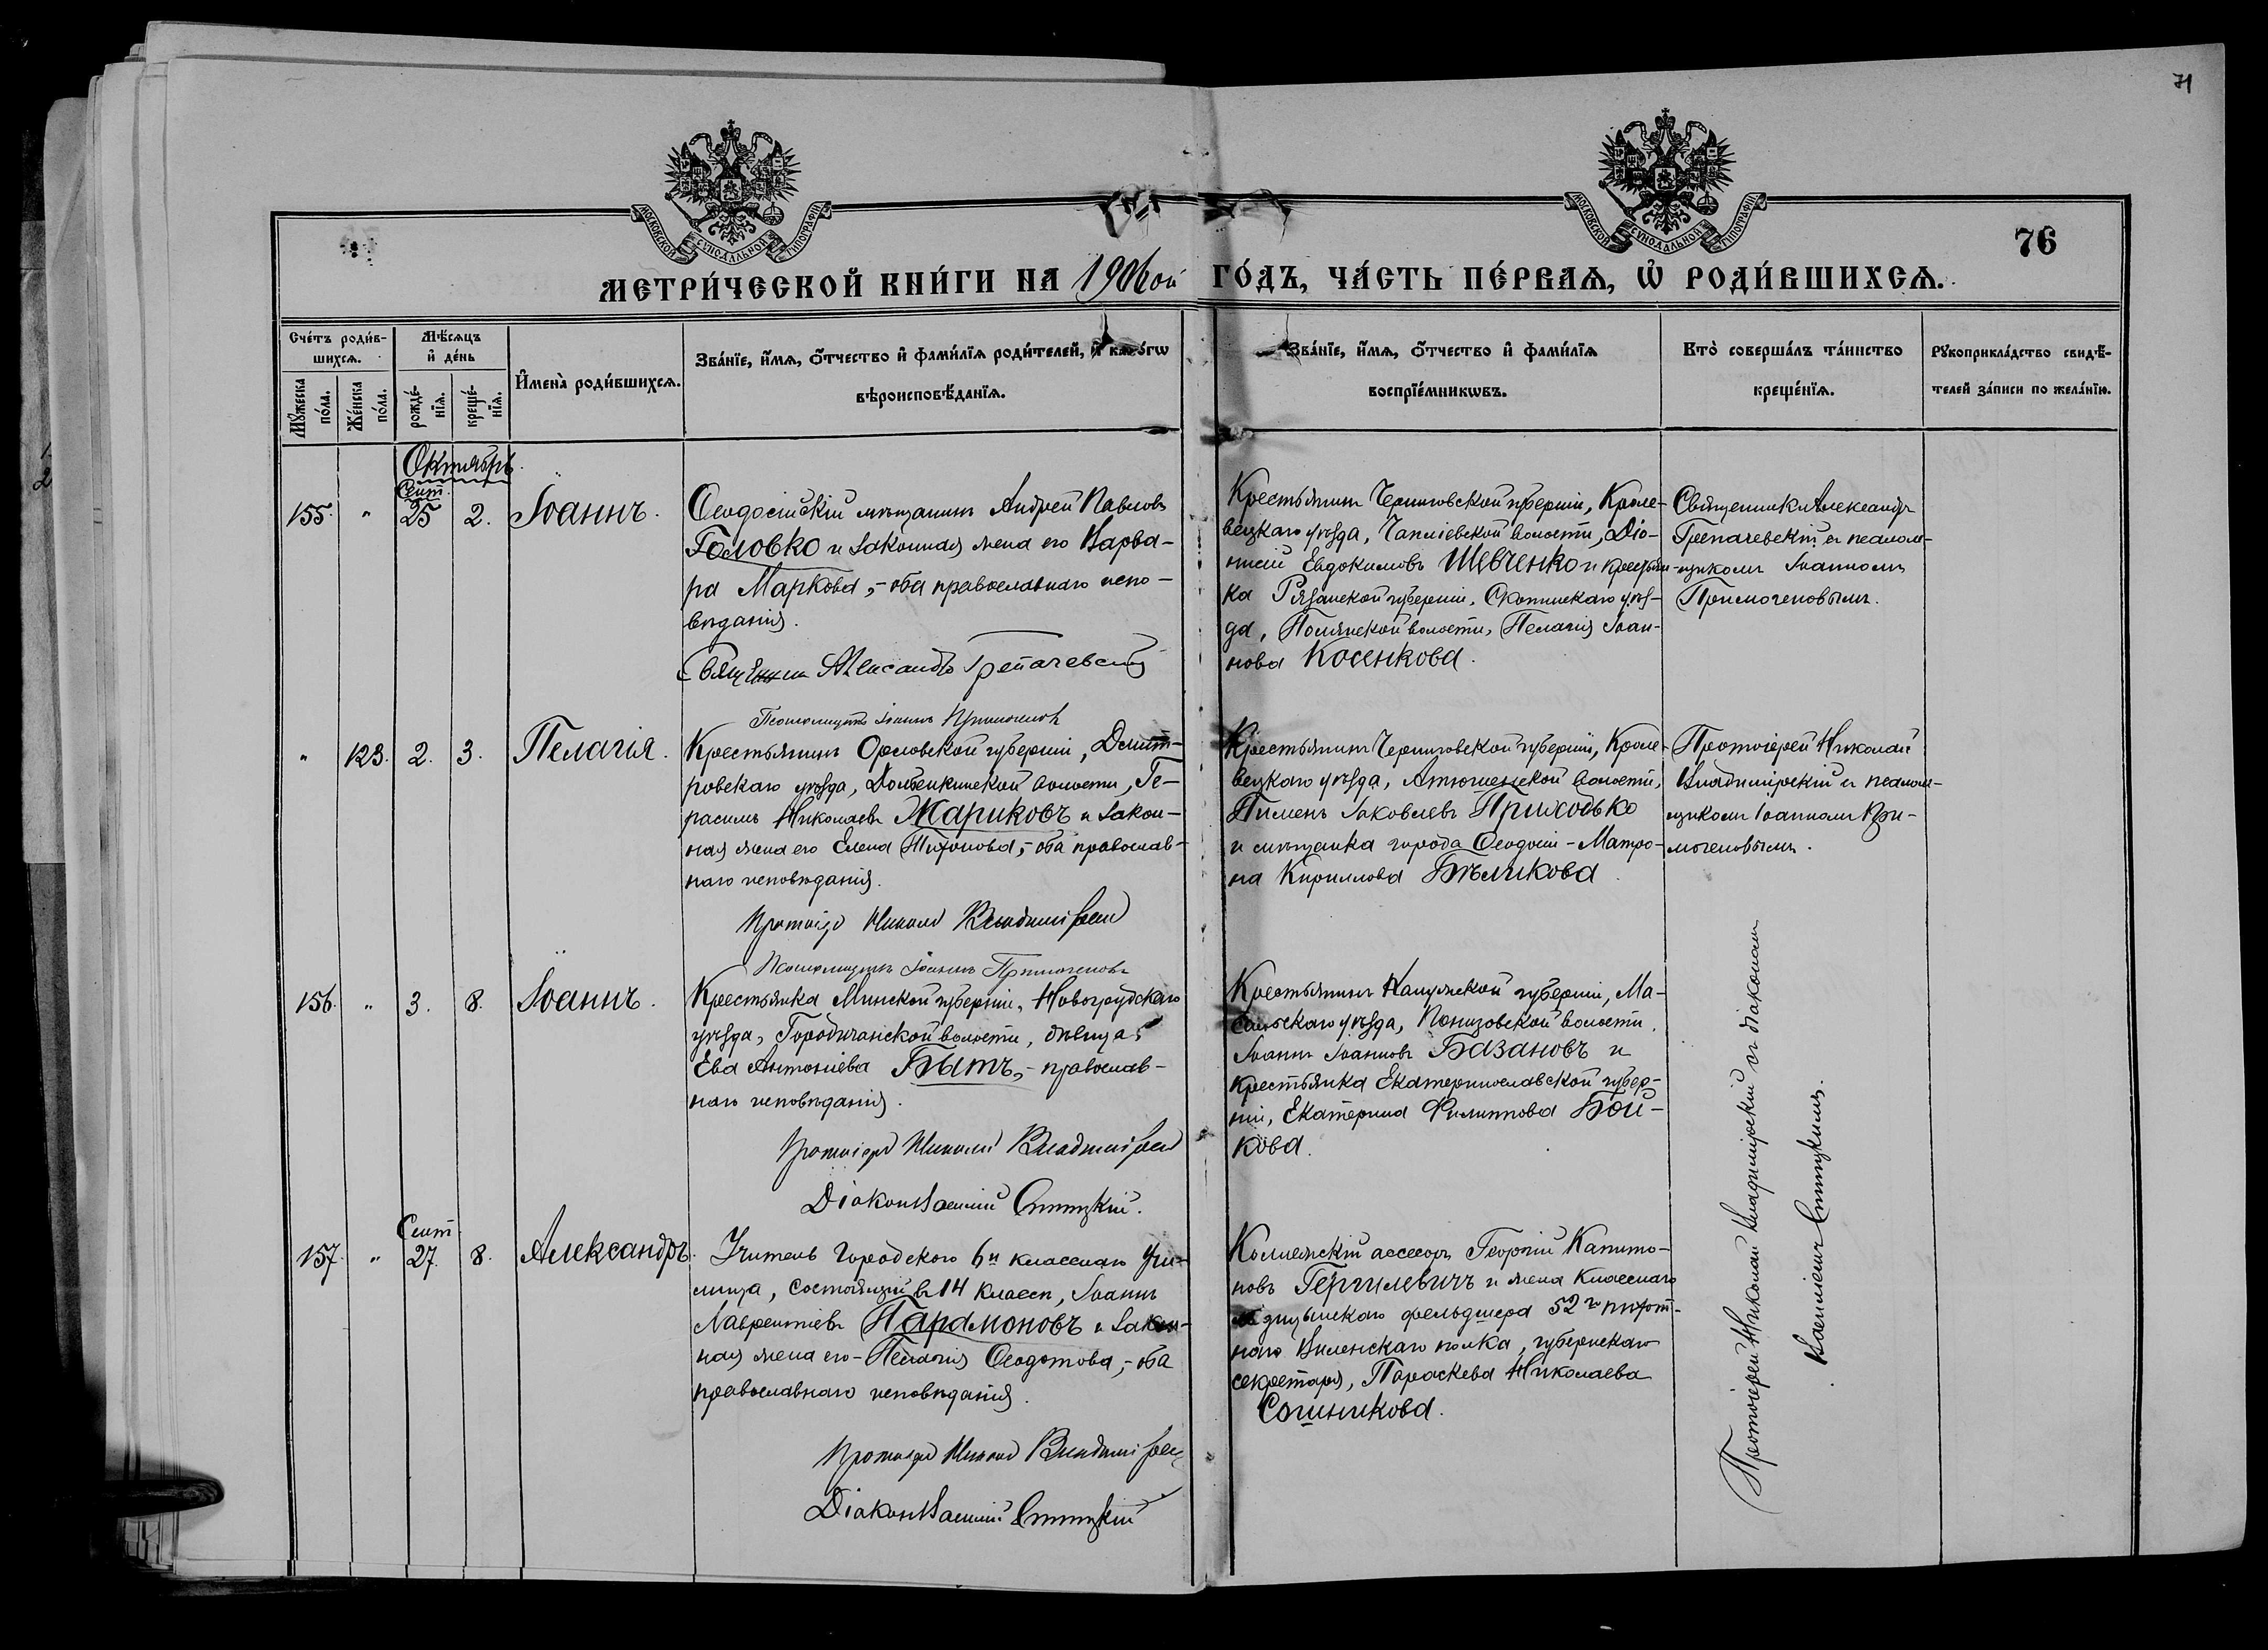 71
МОСКОВСКОЙ СѴНОДАЛЬНОЙ ТИПОГРАФІИ
МОСКОВСКОЙ СѴНОДАЛЬНОЙ ТИПОГРАФІИ
76
МЕТРИ́ЧЕСКОЙ КНИ́ГИ НА 1906ой ГО́ДЪ, ЧА́СТЬ ПЕ́РВАЯ, Ѡ РОДИ́ВШИХСЯ.
Сче́тъ роди́в-
шихся.
Мꙋжеска по́ла.
Же́нска по́ла.
Мѣ́сяцъ
и҆ де́нь
рожде́-
нїя.
креще́-
нїя.
И҆мена̀ роди́вшихся.
Зва́нїе, и҆́мя, ѻ҆́тчество и҆ фами́лїя роди́телей, и҆ како́гѡ
вѣроисповѣ́данїя.
Зва́нїе, и҆́мя, ѻ҆́тчество и҆ фами́лїя
воспрїе́мникѡвъ.
Кто̀ соверша́лъ та́инство
креще́нїя.
Рꙋкоприкла́дство свидѣ́-
телей за́писи по жела́нїю.
Октябрь.
Сент.
155. " 25 2. Іоаннъ.
Ѳеодосійскій мѣщанинъ Андрей Павловъ
Головко и законная жена его Варва-
ра Маркова, - оба православнаго испо-
вѣданія.
Священникъ Александръ Грепачевскій
Псаломщикъ Іоаннъ Примогеновъ
Крестьянинъ Черниговской губерніи, Кроле-
вецкаго уѣзда, Чаплієвской волости, Діо-
нисій Евдокимовъ Шевченко и крестьян-
ка Рязанской губерніи, Скопинскаго уѣз-
да, Полянской волости, Пелагія Іоан-
нова Косенкова.
Священникъ Александръ
Грепачевскій съ псалом-
щикомъ Іоанномъ
Примогеновымъ.
" 123. 2. 3. Пелагія.
Крестьянинъ Орловской губерніи, Дмит-
ровскаго уѣзда, Долбенкинской волости, Ге-
расимъ Николаевъ Жариковъ и закон-
ная жена его Елена Тихонова, - оба православ-
наго исповѣданія.
Протоіер Николай Владимірскій
Псаломщикъ Іоаннъ Примогеновъ
Крестьянинъ Черниговской губерніи, Кроле-
вецкаго уѣзда, Атюшевской волости,
Пименъ Іаковлевъ Приходько
и мѣщанка города Ѳеодосіи - Матро-
на Кириллова Бѣликова.
Протоіерей Николай
Владимірскій съ псалом-
щикомъ Іоанномъ При-
могеновымъ.
156. " 3. 8. Іоаннъ.
Крестьянка Минской губерніи, Новогрудскаго
уѣзда, Городичанской волости, дѣвица,
Ева Антоніева Бытъ, - православ-
наго исповѣданія.
Протоіер Николай Владимірскій
Діаконъ Василій Ступицкій.
Крестьянинъ Калужской губерніи, Ма-
сальскаго уѣзда, Понизовской волости,
Іоаннъ Іоанновъ Базановъ и
крестьянка Екатеринославской губер-
ніи, Екатерина Филиппова Бой-
кова.
Сент.
157. " 27. 8. Александръ.
Учитель Городского 6и класснаго Учи-
лища, состоящій въ 14 классѣ, Іоаннъ
Лаврентіевъ Парамоновъ и закон-
ная жена его - Пелагія Ѳеодотова, - оба
православнаго исповѣданія.
Протоіер Николай Владимірскій
Діаконъ Василій
Коллежскій ассесоръ Георгій Капито-
новъ Гергилевичъ и жена класснаго
медицынскаго фельдшера 52го пѣхот-
наго Виленскаго полка, губернскаго
секретаря, Параскева Николаева
Сошникова.
Протоіерей Николай Владимірскій съ діакономъ
Василіемъ